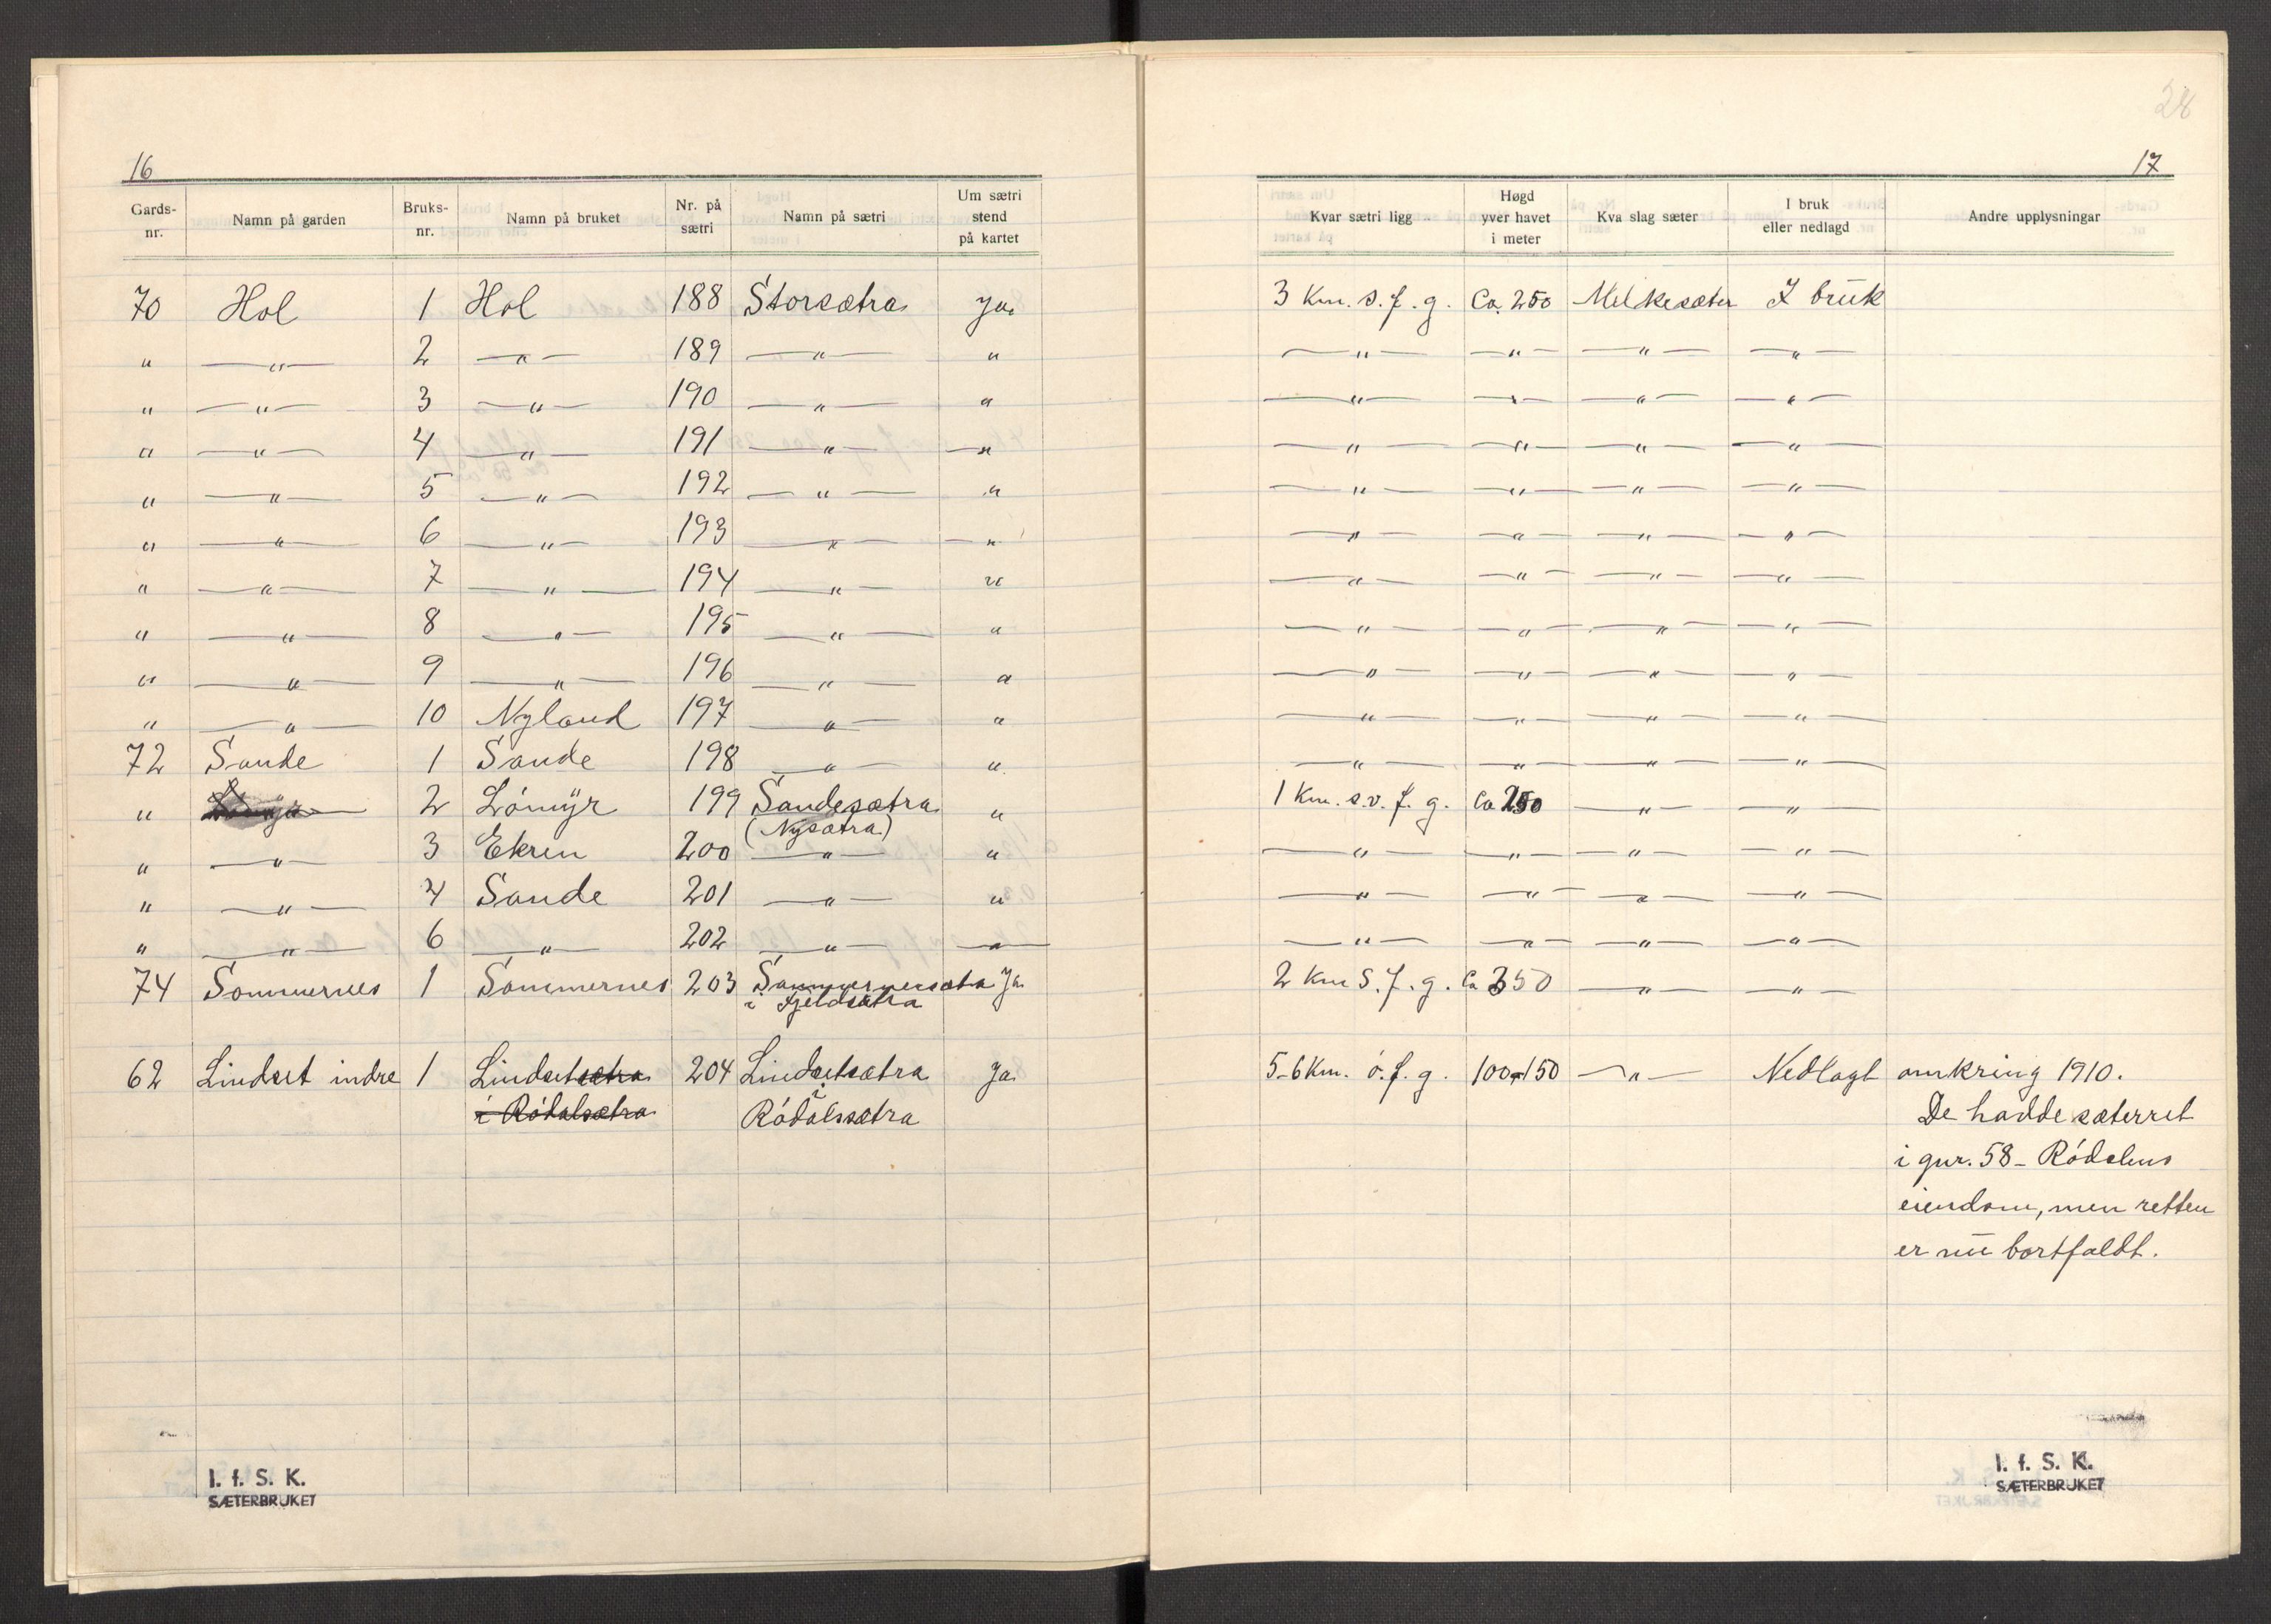 16
Gards-nr. Namn på garden Bruks-nr. Namn på bruket Nr. på sætri Namn på sætri Um sætri stend på kartet
70 Hol 1 Hol 188 Storsætra Ja
" —"— 2 —"— 189 —"— "
" —"— 3 —"— 190 —"— "
" —"— 4 —"— 191 —"— —"
" —"— 5 —"— 192 —"— "
" —"— 6 —"— 193 —"— —"
" —"— 7 —"— 194 —"— "
" —"— 8 —"— 195 —"— "
" —"— 9 —"— 196 —"— "
" —"— 10 Nyland 197 —"— "
72 Sande 1 Sande 198 —"— "
" 2 Lómyr 199 Sandesætra "
(Nysætra)
" —"— 3 Ekren 200 —"— "
" —"— 4 Sande 201 —"— "
" —"— 6 —"— 202 —"— —"—
74 Sommernes 1 Sommernes 203 Sommernessætra Ja
i Fjeldsætra
62 Lindset indre 1 Lindsetsætra 204 Lindsetsætra Ja
i Ródalsætra i
Ródalssætra
I. f. S. K.
SÆTERBRUKET
28
17
Kvar sætri ligg Høgd yver havet i meter Kva slag sæter I bruk eller nedlagd Andre upplysningar
3 Km. s. f. g. Ca. 250 Melkesæter I bruk
—"— —"— —"— —"—
—"— —"— —"— —"—
—"— —"— —"— —"—
—"— —"— —"— —"—
—"— —"— —"— —"—
—"— —"— —"— —"—
—"— —"— —"— —"—
—"— —"— —"— —"—
—"— —"— —"— —"—
—"— —"— —"— —"—
1 Km. s.v. f. g. Ca 250 —"— —"—
—"— —"— —"— —"—
—"— —"— —"— —"—
—"— —"— —"— —"—
2 Km S. f. g. Ca 350 —"— —"—
5-6 Km. ó. f. g. 100-150 —"— Nedlagt omkring 1910.
De hadde sæterret
i gnr. 58 - Ródalens
eiendom, men retten
er nu bortfaldt.
I. f. S. K.
SÆTERBRUKET